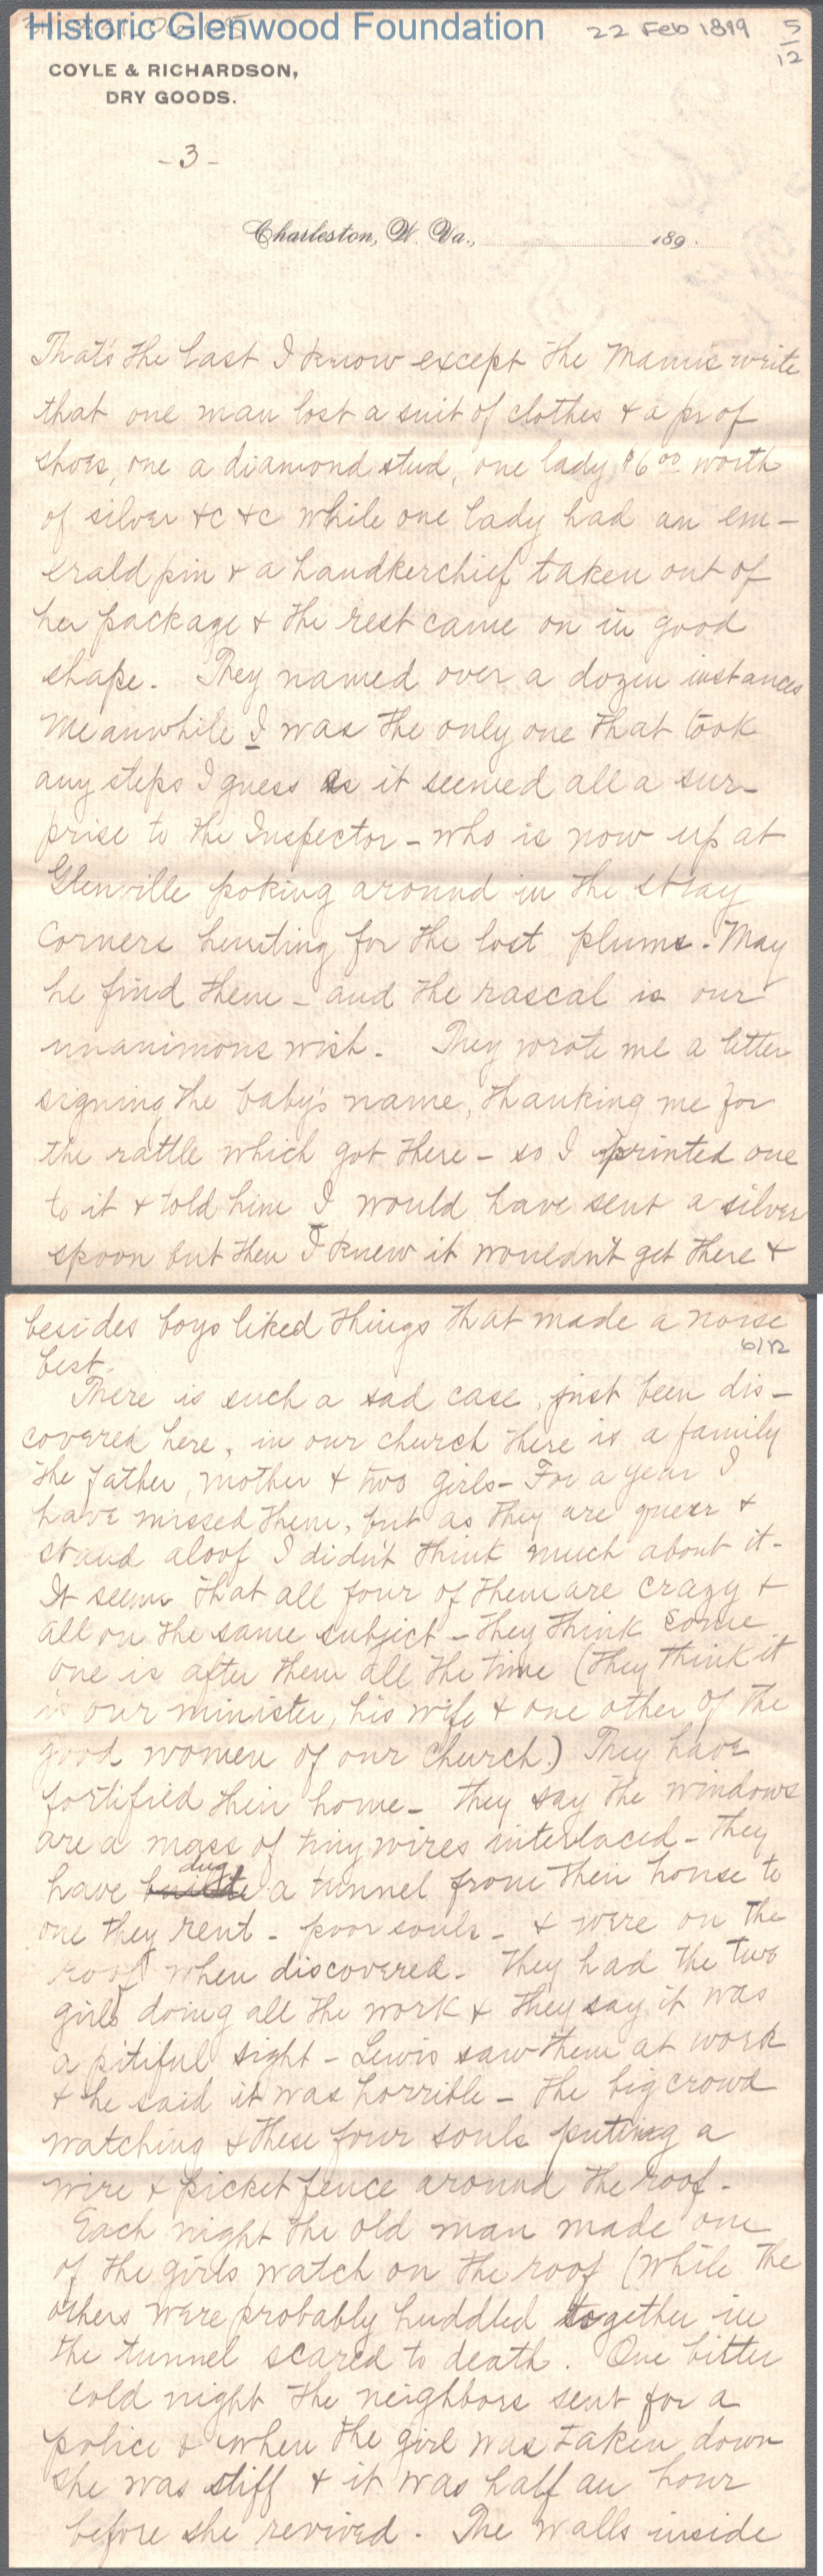 Historic Glenwood Foundation
22 Feb 1899
5/12
COYLE & RICHARDSON,
DRY GOODS.
-3-
Charleston, W. Va., 189
That's the last I know except the Mamie write
that one man lost a suit of clothes & a pr of
shoes, one a diamond stud, one lady $6.00 worth
of silver &c &c while one lady had an em-
erald pin & a handkerchief taken out of
her package & the rest came on in good
shape. They named over a dozen instances
Meanwhile I was the only one that took
any steps I guess as it seemed all a sur-
prise to the Inspector - who is now up at
Glenville poking around in the stray
corners hunting for the lost plums. May
he find them - and the rascal is our
unanimous wish. They wrote me a letter
signing the baby's name, thanking me for
the rattle which got there - so I printed one
to it & told him I would have sent a silver
spoon but then I knew it wouldn't get there &
besides boys liked things that made a noise
6/12
best.
There is such a sad case, just been dis-
covered here, in our church there is a family
the father, mother & two girls - For a year I
have missed them, but as they are queer &
stand aloof I didn't think much about it -
It seems that all four of them are crazy &
all on the same subject - they think some
one is after them all the time (they think it
is our minister, his wife & one other of the
good women of our church.) They have
fortified their home - they say the windows
are a mass of tiny wires interlaced - they
have dug a tunnel from their house to
one they rent - poor souls - & were on the
roof when discovered - they had the two
girls doing all the work & they say it was
a pitiful sight - Lewis saw them at work
& he said it was horrible - the big crowd
watching & these four souls puting a
wire & picket fence around the roof -
Each night the old man made one
of the girls watch on the roof (while the
others were probably huddled together in
the tunnel scared to death. One bitter
cold night the neighbors sent for a
police & when the girl was taken down
she was stiff & it was half an hour
before she revived. The walls inside